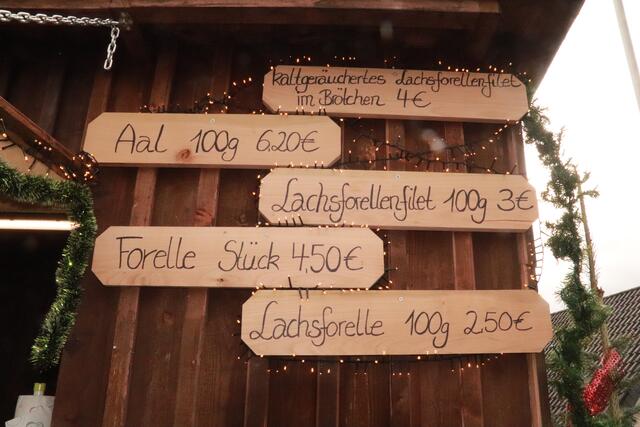 kaltgeräuchertes Lachsforellenfilet
im Brötchen 4€
Aal 100g 6,20€
Lachsforellenfilet 100g 3€
Forelle Stück 4,50€
Lachsforelle 100g 2,50€